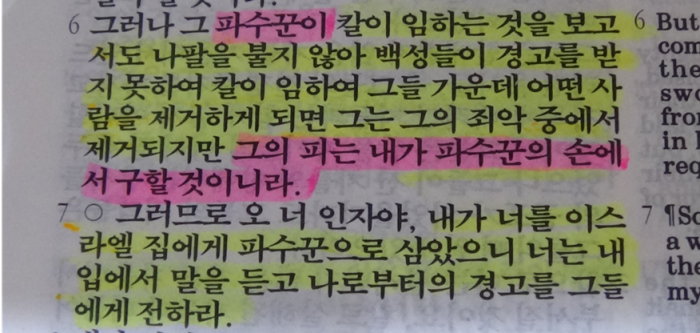 6 그러나 그 파수꾼이 칼이 임하는 것을 보고
서도 나팔을 불지 않아 백성들이 경고를 받
지 못하여 칼이 임하여 그들 가운데 어떤 사
람을 제거하게 되면 그는 그의 죄악 중에서
제거되지만 그의 피는 내가 파수꾼의 손에
서 구할 것이니라.
7 ○ 그러므로 오 너 인자야, 내가 너를 이스
라엘 집에게 파수꾼으로 삼았으니 너는 내
입에서 말을 듣고 나로부터의 경고를 그들
에게 전하라.
6 But
com
the
swo
from
in
req
7 ¶S
a w
the
my